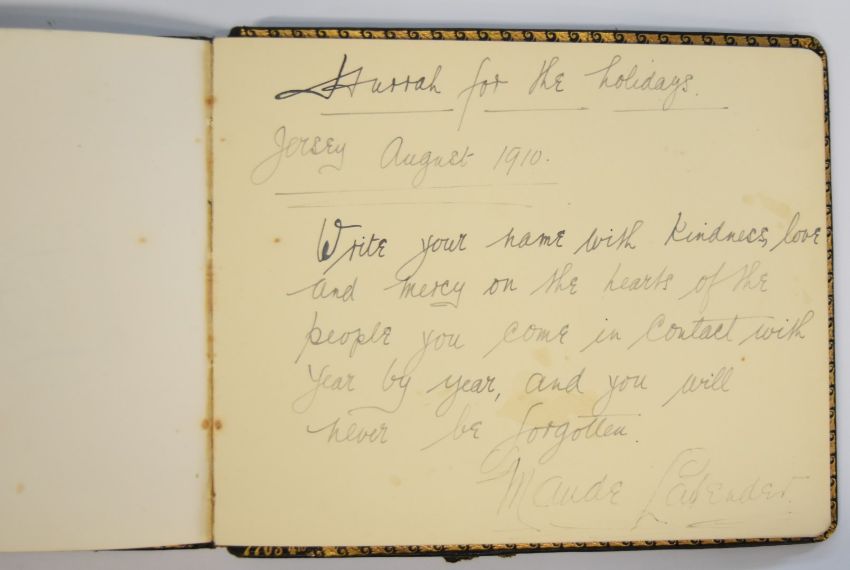 Hurrah for the holidays.
Jersey August 1910.
Write your name with Kindness, love
and mercy on the hearts of the
people you come in Contact with
Year by year, and you will
never be forgotten.
Maude Lavender.